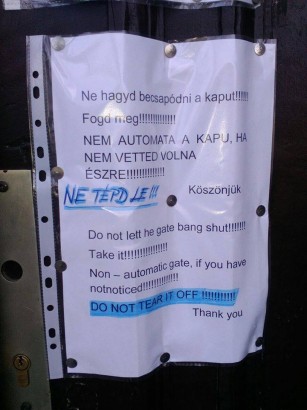 Ne hagyd becsapódni a kaput!!!!!!
Fogd meg!!!!!!!!!!!!!
NEM AUTOMATA A KAPU, HA
NEM VETTED VOLNA
ÉSZRE!!!!!!!!!!!!!
NE TÉPD LE!!! Köszönjük
Do not lett he gate bang shut!!!!!!!
Take it!!!!!!!!!!!!!!!!
Non – automatic gate, if you have
notnoticed!!!!!!!!!!!!!
DO NOT TEAR IT OFF !!!!!!!!!!!
Thank you